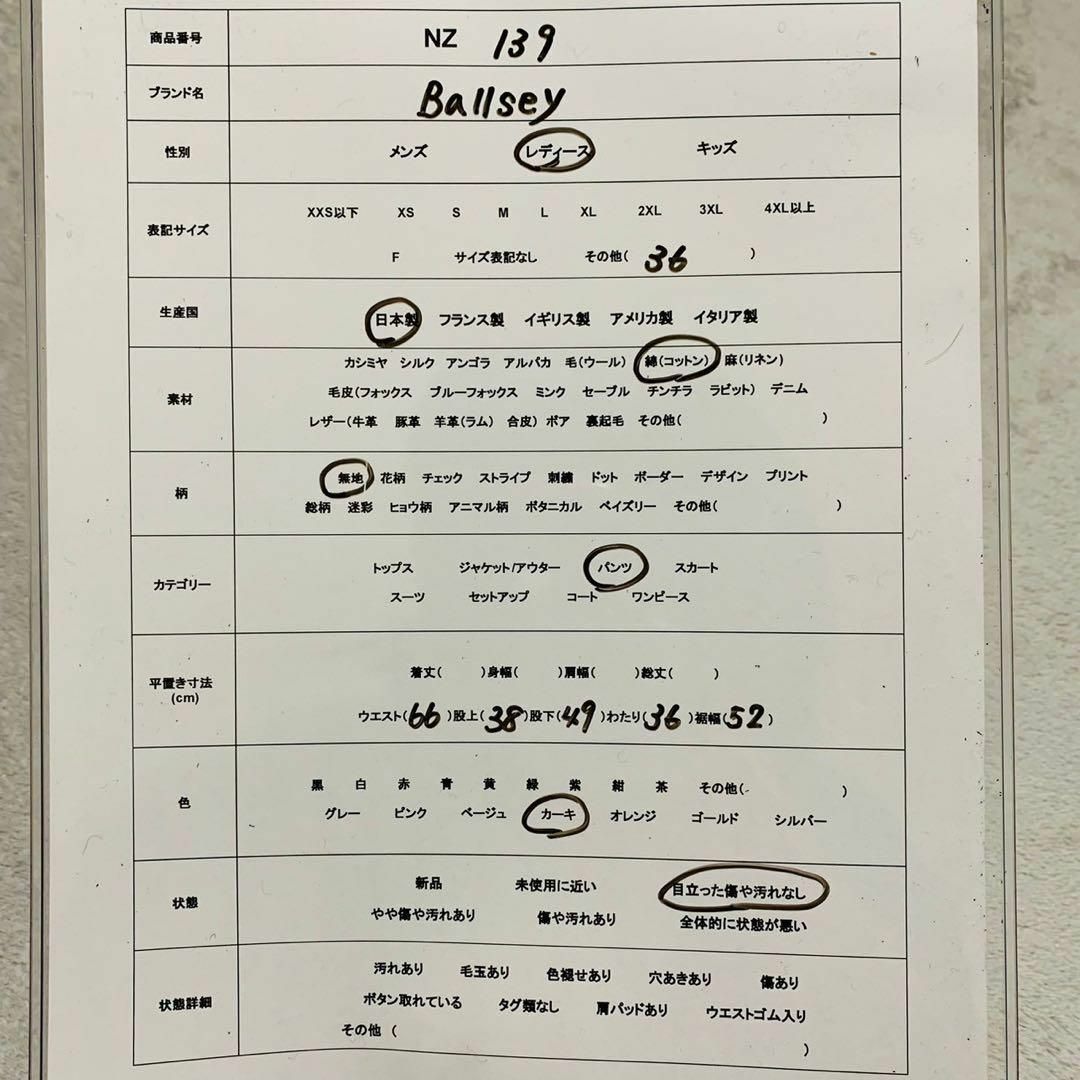 商品番号 NZ 139
ブランド名 Ballsey
性別 メンズ レディース キッズ
表記サイズ XXS以下 XS S M L XL 2XL 3XL 4XL以上
F サイズ表記なし その他( 36 )
生産国 日本製 フランス製 イギリス製 アメリカ製 イタリア製
素材 カシミヤ シルク アンゴラ アルパカ 毛(ウール) 綿(コットン) 麻(リネン)
毛皮(フォックス ブルーフォックス ミンク セーブル チンチラ ラビット) デニム
レザー(牛革 豚革 羊革(ラム) 合皮) ボア 裏起毛 その他( )
柄 無地 花柄 チェック ストライプ 刺繍 ドット ボーダー デザイン プリント
総柄 迷彩 ヒョウ柄 アニマル柄 ボタニカル ペイズリー その他( )
カテゴリー トップス ジャケット/アウター パンツ スカート
スーツ セットアップ コート ワンピース
平置き寸法
(cm)
着丈( )身幅( )肩幅( )総丈( )
ウエスト(66)股上(38)股下(49)わたり(36)裾幅(52)
色 黒 白 赤 青 黄 緑 紫 紺 茶 その他( )
グレー ピンク ベージュ カーキ オレンジ ゴールド シルバー
状態 新品 未使用に近い 目立った傷や汚れなし
やや傷や汚れあり 傷や汚れあり 全体的に状態が悪い
状態詳細 汚れあり 毛玉あり 色褪せあり 穴あきあり 傷あり
ボタン取れている タグ類なし 肩パッドあり ウエストゴム入り
その他 ( )